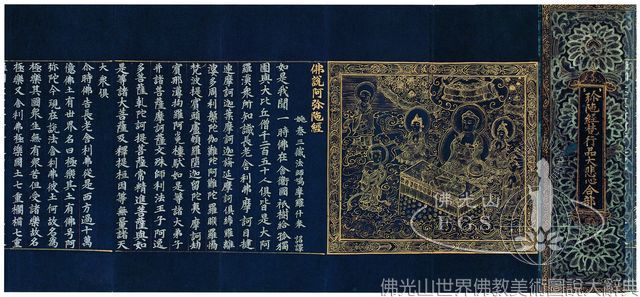 弥陁經普行品大悲合部
佛說阿弥陁經
姚秦三藏法師鳩摩羅什奉 詔譯
如是我聞一時佛在舍衛國祇樹給孤獨
園與大比丘僧千二百五十人俱皆是大阿
羅漢衆所知識長老舍利弗摩訶目揵
連摩訶迦葉摩訶迦旃延摩訶俱絺羅離
婆多周利槃陁伽難陁阿難陁羅睺羅憍
梵波提賓頭盧頗羅墮迦留陁夷摩訶劫
賓那薄拘羅阿㝹樓馱如是等諸大弟子
并諸菩薩摩訶薩文殊師利法王子阿逸
多菩薩乾陁訶提菩薩常精進菩薩與如
是等諸大菩薩及釋提桓因等無量諸天
大衆俱
尒時佛告長老舍利弗從是西方過十萬
億佛土有世界名曰極樂其土有佛号阿
弥陁今現在說法舍利弗彼土何故名爲
極樂其國衆生無有衆苦但受諸樂故名
極樂又舍利弗極樂國土七重欄楯七重
佛光山
F.G.S.
佛光山世界佛教美術圖說大辭典